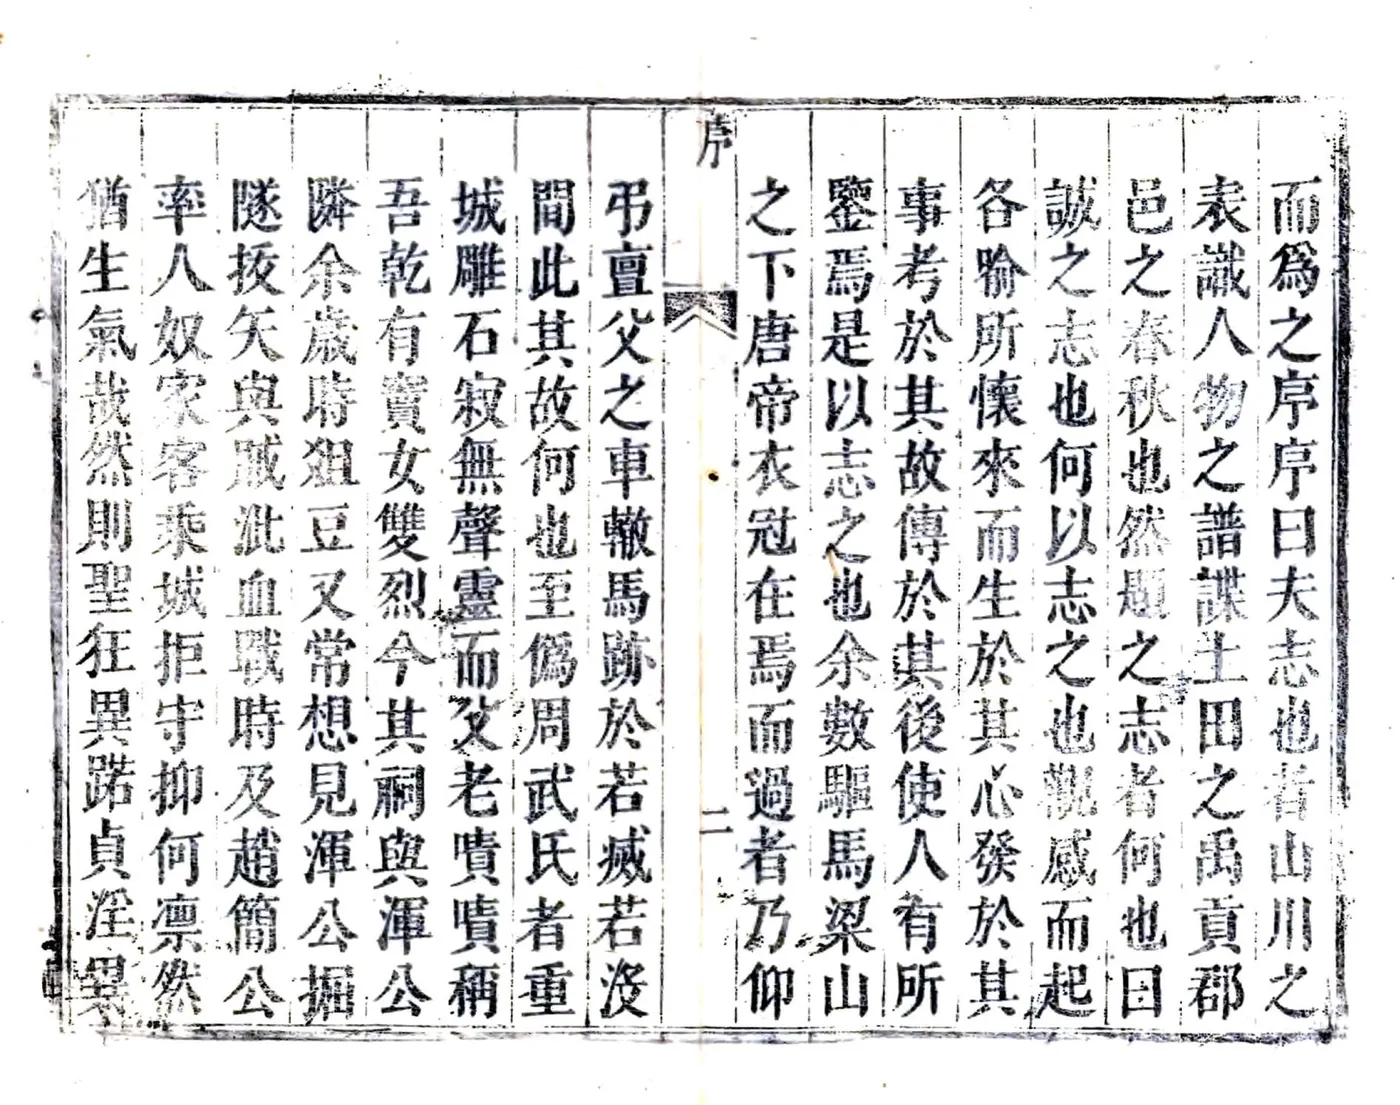 而爲之序序曰夫志也者山川之
表識人物之譜諜土田之禹貢郡
邑之春秋也然題之志者何也曰
誠之志也何以志之也觀感而起
各喻所懷來而生於其心發於其
事考於其故傳於其後使人有所
鑒焉是以志之也余數驅馬梁山
之下唐帝衣冠在焉而過者乃仰
序
二
弔亶父之車轍馬跡於若滅若沒
間此其故何也至僞周武氏者重
城雕石寂無聲靈而父老嘖嘖稱
吾乾有竇女雙烈今其祠與渾公
隣余歲時俎豆又常想見渾公掘
隧拔矢與賊泚血戰時及趙簡公
率人奴家客乘城拒守抑何凛然
猶生氣哉然則聖狂異跖貞淫異